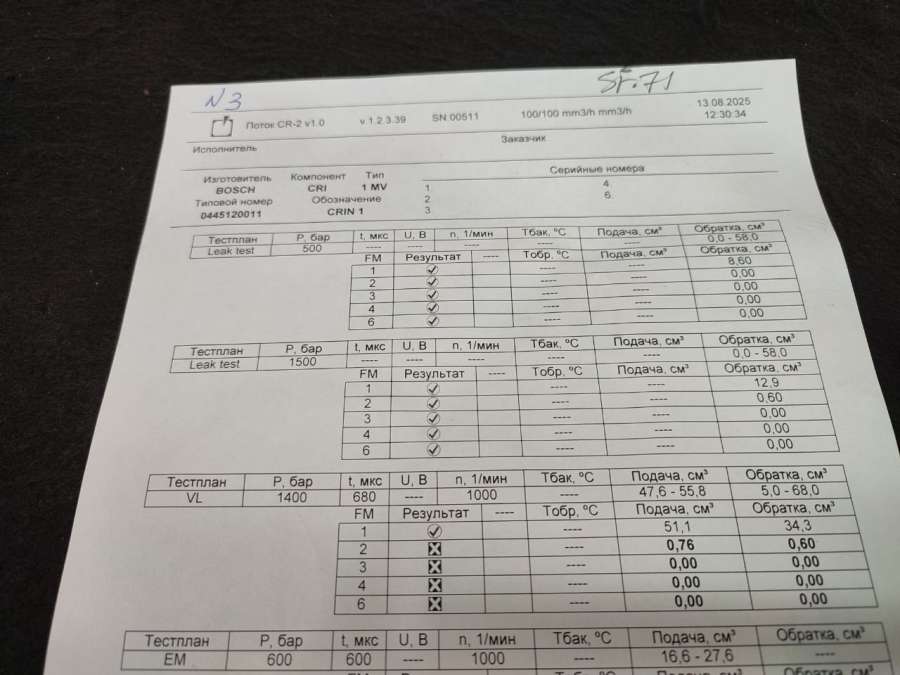 N 3 Sr. 71
Поток CR-2 v1.0 v.1.2.3.39 SN:00511 100/100 mm3/h mm3/h 13.08.2025
12:30:34
Исполнитель Заказчик
Изготовитель Компонент Тип Серийные номера
BOSCH CRI 1 MV 1 4
Типовой номер Обозначение 2 6
0445120011 CRIN 1 3
Тестплан P, бар t, мкс U, В n, 1/мин Tбак, ºC Подача, см³ Обратка, см³
Leak test 500 ---- ---- ---- ---- ---- 0,0 - 58,0
FM Результат ---- Tобр, ºC Подача, см³ Обратка, см³
1 ---- ---- 8,60
2 ---- ---- 0,00
3 ---- ---- 0,00
4 ---- ---- 0,00
6 ---- ---- 0,00
Тестплан P, бар t, мкс U, В n, 1/мин Tбак, ºC Подача, см³ Обратка, см³
Leak test 1500 ---- ---- ---- ---- ---- 0,0 - 58,0
FM Результат ---- Tобр, ºC Подача, см³ Обратка, см³
1 ---- ---- 12,9
2 ---- ---- 0,60
3 ---- ---- 0,00
4 ---- ---- 0,00
6 ---- ---- 0,00
Тестплан P, бар t, мкс U, В n, 1/мин Tбак, ºC Подача, см³ Обратка, см³
VL 1400 680 ---- 1000 ---- 47,6 - 55,8 5,0 - 68,0
FM Результат ---- Tобр, ºC Подача, см³ Обратка, см³
1 ---- 51,1 34,3
2 ---- 0,76 0,60
3 ---- 0,00 0,00
4 ---- 0,00 0,00
6 ---- 0,00 0,00
Тестплан P, бар t, мкс U, В n, 1/мин Tбак, ºC Подача, см³ Обратка, см³
EM 600 600 ---- 1000 ---- 16,6 - 27,6 ----